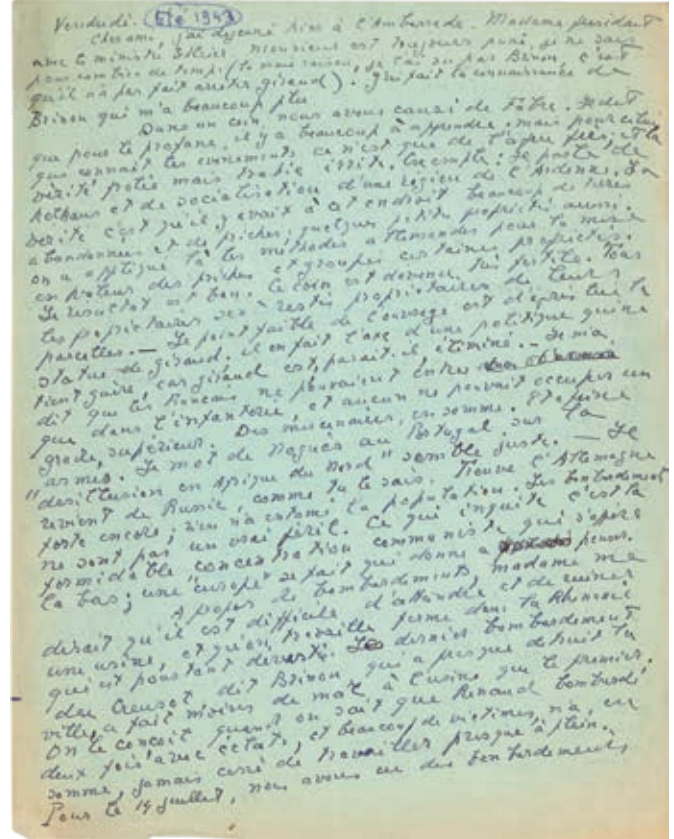 Vendredi. Eté 1943
Cher ami, j'ai déjeuné hier à l'Ambassade. Madame présidait
avec le ministre Monsieur est toujours puni, je ne sais
pour combien de temps (la raison, je l'ai su par Brinon, c'est
qu'il n'a pas fait arrêter giraud). J'y ai fait la connaissance de
Brinon qui m'a beaucoup plu.
Dans un coin, nous avons causé de Fabre. Il dit
que pour le profane, il y a beaucoup à apprendre, mais pour celui
qui connaît les événements ce n'est que de l'à peu près, et la
vérité frôlée mais trahie irrite. Exemple : Je parle de
Rethens et de socialisation d'une région de l'Ardenne. La
vérité c'est qu'il y avait à cet endroit beaucoup de terres
abandonnées et de friches; quelques petites propriétés aussi.
on a appliqué là les méthodes allemandes pour la mise
en valeur des friches et groupé certaines propriétés.
Le résultat est bon. Ce coin est devenu très fertile. Tous
les propriétaires restés propriétaires de leurs
parcelles. — Le point faible de l'ouvrage est d'après lui la
statue de giraud. il en fait l'axe d'une politique qui ne
tient guère, car giraud est, paraît-il éliminé. — Je
dit que les Français ne pouvaient entrer
que dans l'infanterie, et aucun ne pouvait occuper un
grade supérieur. Des mercenaires, en somme. Et
armés. Le mot de Noguès au Portugal sur la
"désillusion en Afrique du Nord" semble juste. — Il
revient de Russie, comme tu le sais. Trouve l'Allemagne
forte encore; rien n'a entamé la population. Les bombardements
ne sont pas un vrai péril. Ce qui inquiète c'est la
formidable concentration communiste qui s'opère
là bas; une "Europe" se fait qui donne à penser.
A propos de bombardements, madame me
disait qu'il est difficile d'atteindre et de ruiner
une usine, et qu'on travaille ferme dans la Rhénanie
qui est pourtant dévastée. Le dernier bombardement
du Creusot dit Brinon, qui a presque détruit la
ville, a fait moins de mal à l'usine que le premier.
On le conçoit quand on sait que Renaud bombardé
deux fois avec éclats, et beaucoup de victimes, n'a, en
somme, jamais cessé de travailler presque à plein.
Pour le 14 juillet, nous avons eu des bombardements